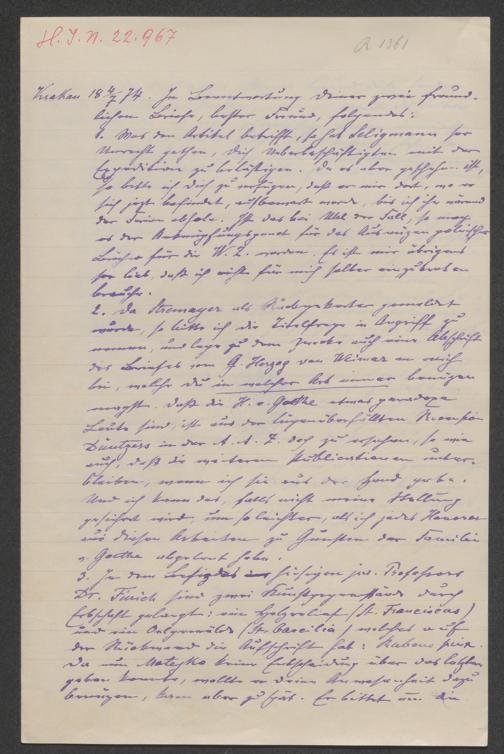 H. I. N. 22.967
R 1361
Krakau 18 4/7 74. In Beantwortung Deiner zwei freund-
lichen Briefe, bester Freund, folgendes:
1. Was den Artikel betrifft, so hat Seligmann sehr
Unrecht gethan, Dich Ueberbeschäftigten mit der
Expedition zu belästigen. Da es aber geschehen ist,
so bitte ich Dich zu verfügen, daß er mir dort, wo er
sich jetzt befindet, aufbewahrt werde, bis ich ihn während
der Ferien abhole. Ist das bei Uhl der Fall, so mag
es der Anknüpfungspunct für das Anzeigen polnischer
Bücher für die W. Z. werden. Es ist mir übrigens
sehr lieb, daß ich nichts für mich selber einzubreten
brauche.
2. Da Stremayer als Rückgekehrter gemeldet
wurde, so bitte ich die Titelfrage in Angriff zu
nehmen, und lege zu dem Zwecke auch eine Abschrift
des Briefes vom G. Herzog von Weimar an mich
bei, welche Du in welcher Art immer benützen
magst. Daß die H. v. Goethe etwas paradoxe
Leute sind, ist aus der lügenüberfüllten Recension
Düntzers in der A. A. Z. doch zu ersehen, so wie
auch, daß die weiteren Publicationen unter-
bleiben, wenn ich sie aus der Hand gebe.
Und ich kann das, falls nicht meine Stellung
gesichert wird, um so leichter, als ich jedes Honorar
aus diesen Arbeiten zu Gunsten der Familie
v. Goethe abgelehnt habe.
3. In den Besitz des hiesigen jur. Professors
Dr. Fierich sind zwei Kunstgegenstände durch
Erbschaft gelangt: ein Holzrelief (St. Franciscus)
und ein Oelgemälde (St. Caecilia) welches auf
der Rückwand die Aufschrift hat: Rubens pinx.
Da nun Matejko keine Entscheidung über das letztere
geben konnte, wollte er Deine Anwesenheit dazu
benützen, kam aber zu spät. Er bittet nun die